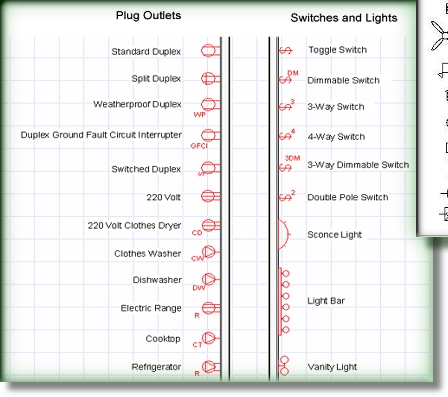 Plug Outlets
Switches and Lights
Standard Duplex
Toggle Switch
Split Duplex
DM
Dimmable Switch
Weatherproof Duplex
WP
3
3-Way Switch
Duplex Ground Fault Circuit Interrupter
GFCI
4
4-Way Switch
Switched Duplex
S
3DM
3-Way Dimmable Switch
220 Volt
2
Double Pole Switch
220 Volt Clothes Dryer
CD
Sconce Light
Clothes Washer
CW
Dishwasher
DW
Electric Range
R
Light Bar
Cooktop
CT
Refrigerator
R
Vanity Light